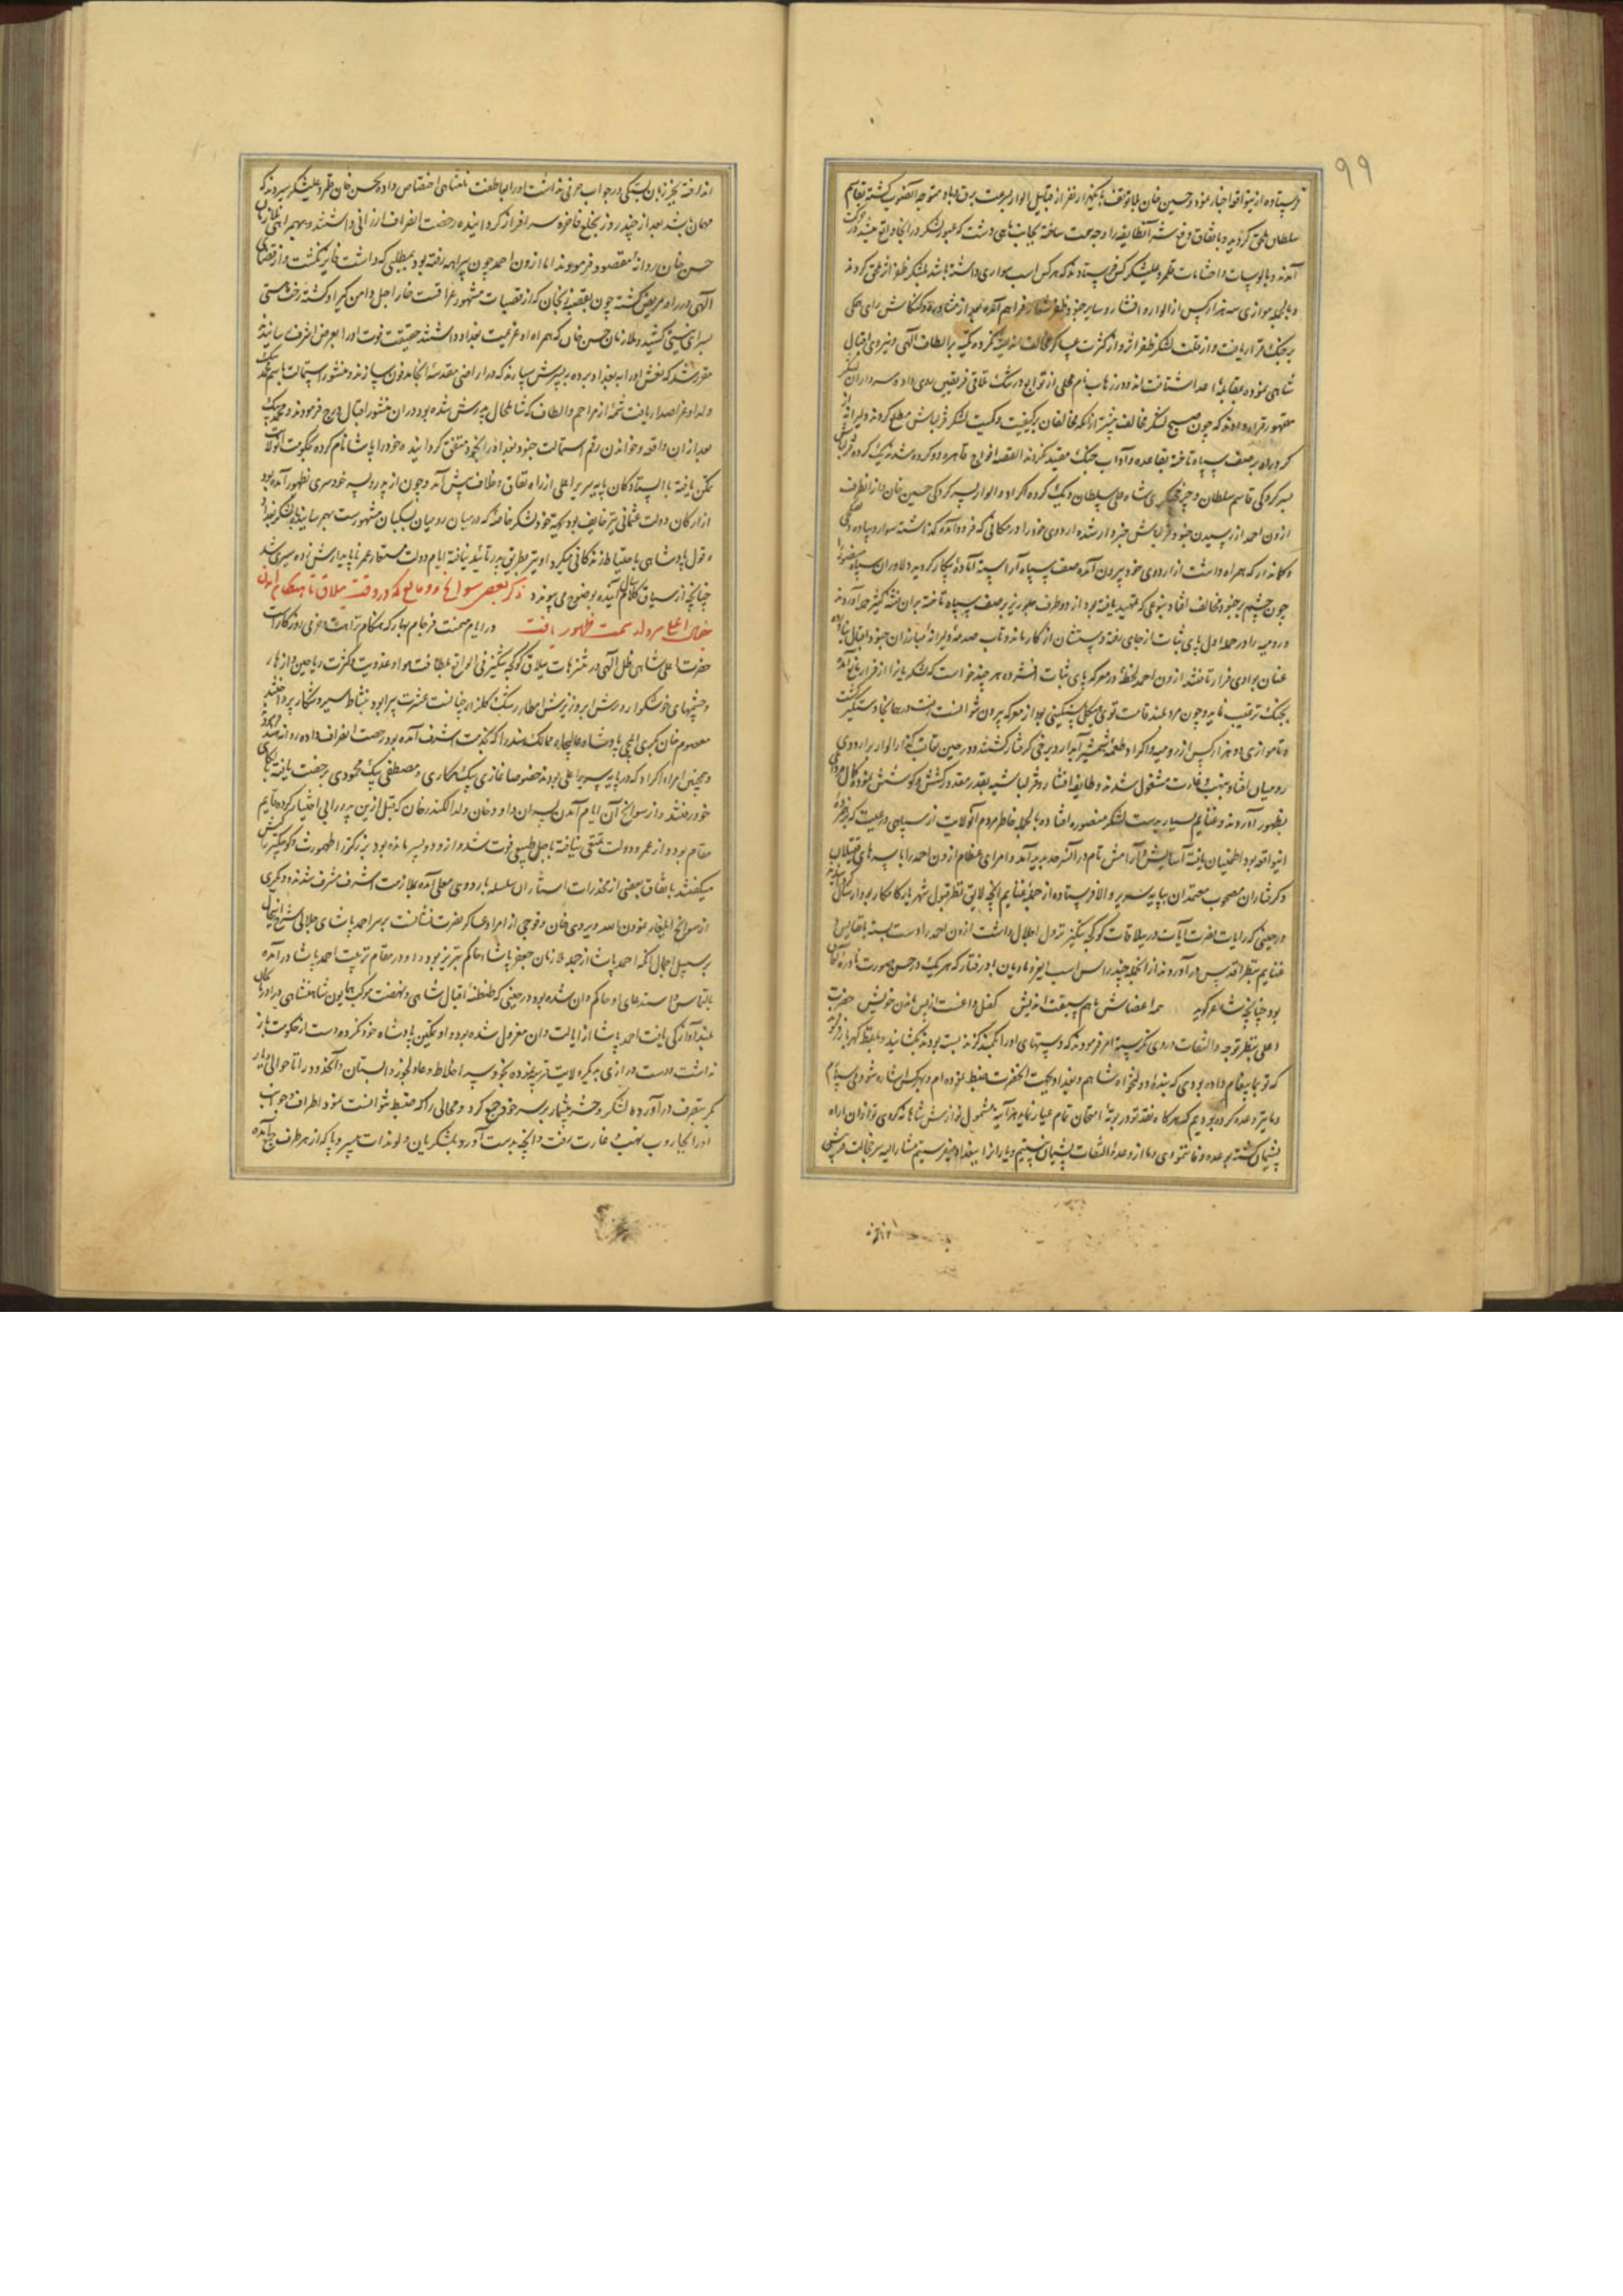 ۹۹
فرستاده از بنواقعه اخبار نمود و حسین خان بلاتوقف با یکهزار نفر از قبایل الوار بسرعت برق و باد متوجه آنصوب گشته بقاسم
سلطان ملحق گردید و باتفاق دفع شر آنطایفه را وجه همت ساخته بجانب ماهی دشت که عبور لشکر در آنجا واقع میشد در حرکت
آمدند و بالوسات و احشامات قلمرو علیشکر کس فرستادند که هر کس اسب سواری داشته باشد بلشکر ظفر اثر ملحق گردند
و بالجمله موازی سه هزار کس از الوار و افشار و سایر جنود ظفر شعار فراهم آمده بعد از مشاوره و کنکاش رای همگی
بر جنک قرار یافت و از قلت لشکر ظفر اثر و از کثرت عساکر مخالف اندیشه نکرده تکیه بر الطاف الهی و نیروی اقبال
شاهی نموده بمقابله اعدا شتافتند و در زهاب نام محلی از توابع درتنک تلاقی فریقین روی داد و سرداران لشکر
مقهور قرار دادند که چون صبح لشکر مخالف پیشتر از آنکه مخالفان بر کیفیت و کمیت لشکر قزلباش مطلع گردند دلیرانه
کرد راه بر صف سپاه تاخته بقاعده و آداب جنک مقید نگردند القصه افواج قاهره دو کروه شده یک کروه قزلباش
بسرکردگی قاسم سلطان و چرخچیگری شاه علی سلطان و یک کروه اکراد و الوار بسرکردگی حسین خان و از آنطرف
ازون احمد از رسیدن جنود قزلباش خبردار شده اردوی خود را در مکانی که فرود آمده گذاشته سوار و پیاده
و کماندار که همراه داشت از اردوی خود بیرون آمده صف سپاه آراسته آماده پیکار گردید دلاوران سپاه منصور را
چون چشم بر جنود مخالف افتاد بنوعی که تمهید یافته بود از دو طرف جلوریز بر صف سپاه تاخته بر آن فئه کثیر حمله آوردند
و رومیه را در حمله اول پای ثبات از جای رفته دستشان از کار ماند و تاب صدمه دلیرانه مبارزان جنود اقبال نیاورده
عنان بوادی فرار تافتند ازون احمد لحظه در معرکه پای ثبات افشرده هر چند خواست که لشکریانرا از فرار مانع آمده
بجنک ترغیب نماید و چون مرد بلند قامت قوی هیکل سنگینی بود از معرکه بیرون نتوانست رفت در همانجا دستگیر گشت
و تا موازی دو هزار کس از رومیه و اکراد طعمه شمشیر آبدار و برخی گرفتار گشتند و در حین تعاقب گذار الوار بر اردوی
رومیان افتاد بنهب و غارت مشغول شدند و طایفه افشار و قزلباشیه بقدر مقدور کشش و کوشش نموده کمال مردانگی
بظهور آوردند و غنایم بسیار بدست لشکر منصوره افتاده بالجمله خاطر مردم آنولایت از سپاهی و رعیت که
اینواقعه بود اطمینان یافته آسایش و آرامش تام در آنسرحد پدید آمد و امرای عظام ازون احمد را با سرهای قتیلان
و گرفتاران مصحوب معتمدان بپایه سریر والا فرستاده از جمله غنایم آنچه لایق نظر قبول شهریار کامکار بود ارسال گردانیدند
در حینی که رایات نصرت آیات در ییلاقات کوکچه تنکیز نزول اجلال داشت ازون احمد را دست بسته با نفایس
غنایم بنظر اقدس در آوردند از آنجمله چند راس اسب
بود چنانچه شاعر گوید همه اعضاش باهم سبقت اندیش کفل واعنست از پس ماندن خویش حضرت
اعلی بنظر توجه و التفات در وی نگریسته امر فرمودند که دستهای او را که بکمند بسته بودند بگشایند و بلفظ گهربار فرمودند
که تو بما پیغام داده بودی که بنده و دولتخواه شاهم و بغداد بجهت آنحضرت ضبط نموده ام و بهر کس اشاره شود می سپارم
و ما نیز وعده کرده بودیم که هر گاه نقد تو در بوته امتحان تمام عیار نماید هر آینه مشمول نوازش شاهانه گردی تو از آن اراده
پشیمان گشته بوعده وفا ننمودی و ما از وعده التفات پشیمان نیستیم و یار انرا ببغداد میفرستیم مشارالیه سر خجالت در پیش
انداخته بجز زبان بستگی در جواب حرفی نداشت او را بعاطفت نامتناهی اختصاص داده بحسن خان قلمرو علیشکر سپردند که
مهمان باشد بعد از چند روز بخلع فاخره سرافراز گردانیده رخصت انصراف ارزانی داشتند و بهمراهی ملازمان
حسن خان روانه مقصود فرمودند اما ازون احمد چون بیراهه رفته بود بمطلبی که داشت فایز نگشت و از قضای
الهی در راه مریض گشته چون بقصبه زنجان که از قصبات مشهور عراقست خار اجل دامن گیر او گشته رخت هستی
بسرای نیستی کشید و ملازمان حسن خان که همراه او عزیمت بغداد داشتند حقیقت فوت او را بعرض اشرف رسانیدند
مقرر شد که نعش او را ببغداد برده به پسرش سپارند که در اراضی مقدسه آنجا مدفون سازند و منشور استمالت باسم محمد بیک
ولد او عز اصدار یافت شمه از مراحم و الطاف که شامل حال پدرش شده بود در آن منشور اقبال درج فرمودند و محمد بیک
بعد از آن واقعه و خواندن رقم استمالت جنود بغداد را بخود متفق گردانیده خود را پاشا نام کرده بحکومت آنولایت
تمکن یافته با ایستادگان پایه سریر اعلی از راه نفاق و خلاف پیش آمد و چون از پدر و پسر خودسری بظهور آمده بود
از ارکان دولت عثمانی نیز خایف بود بجهة خود لشکر خاصه که در میان رومیان بسکبان مشهورست بهم رسانیده بلشکر بغداد
و قول پادشاهی باحتیاط زندگانی میکرد او نیز بطریق پدر تأئید نیافته ایام دولت مستعار عمر ناپایدارش زود سپری شد
چنانچه از سیاق کلام آینده بوضوح می پیوندد ذکر بعضی سوانح و وقایع که در وقت ییلاق تا هنگام
در ایام میمنت فرجام بهار که هنگام نزاهت و خرمی روزگارست
حضرت اعلی شاهی ظل الهی در متنزهات ییلاق کوکچه تنکیز که فی الواقع بلطافت هوا و عذوبت و کثرت ریاحین و ازهار
و چشمهای خوشگوار و رشح ابر و ریزش امطار رشک گلزار جنانست عشرت پیرا بود بنشاط سیر و شکار پرداختند
معصوم خان بکری ایلچی پادشاه عالیجاه ممالک هند را که بخدمت اشرف آمده بود رخصت انصراف داده روانه هند
و همچنین امراء اکراد که در پایه سریر اعلی بودند خصوصا غازی بیک حکاری و مصطفی بیک محمودی رخصت یافته
خود رفتند و از سوانح آن ایام آمدن پسران داود خان ولد الکسندر خان که قبل از این پدر را بی اختیار کرده قایم
مقام بود و از عمر و دولت تمتعی نیافته باجل طبیعی فوت شده از او دو پسر مانده بود بزرگتر را طهمورث و کوچکتر را
میگفتند باتفاق بعضی از مخدرات استار آن سلسله باردوی معلی آمده بملازمت اشرف مشرف شدند و دیگری
از سوانح ایلغار نمودن الله ویردی خان و فوجی از امراء عساکر نصرت نشانست بر سر احمد پاشای جلالی شرح اینحال
بر سبیل اجمال آنکه احمد پاشا از جمله ملازمان جعفر پاشاء حاکم تبریز بود و او در مقام تربیت احمد پاشا در آمده
بالتماس و استدعای او حاکم وان شده بود در حینی که طنطنه اقبال شاهی و نهضت موکب همایون شاهنشاهی در آذربایجان
بلند آوازگی یافت احمد پاشا از ایالت وان معزول شده بود و او تمکین پادشاه خود نکرده دست از حکومت باز
نداشت و دست درازی بدیگر ولایت قریبه نموده بخود سر اخلاط و عادلجوز و البستان و آنحدود را تا حوالی
بتصرف در آورده لشکر و حشر بیشمار بر سر خود جمع کرد و محالی را که ضبط نتوانست نمود اطراف و جوانب
او را بجاروب نهب و غارت رفت و آنچه بدست آورد بلشکریان و لوندات بیسر و پا که از هر طرف جمع آمده